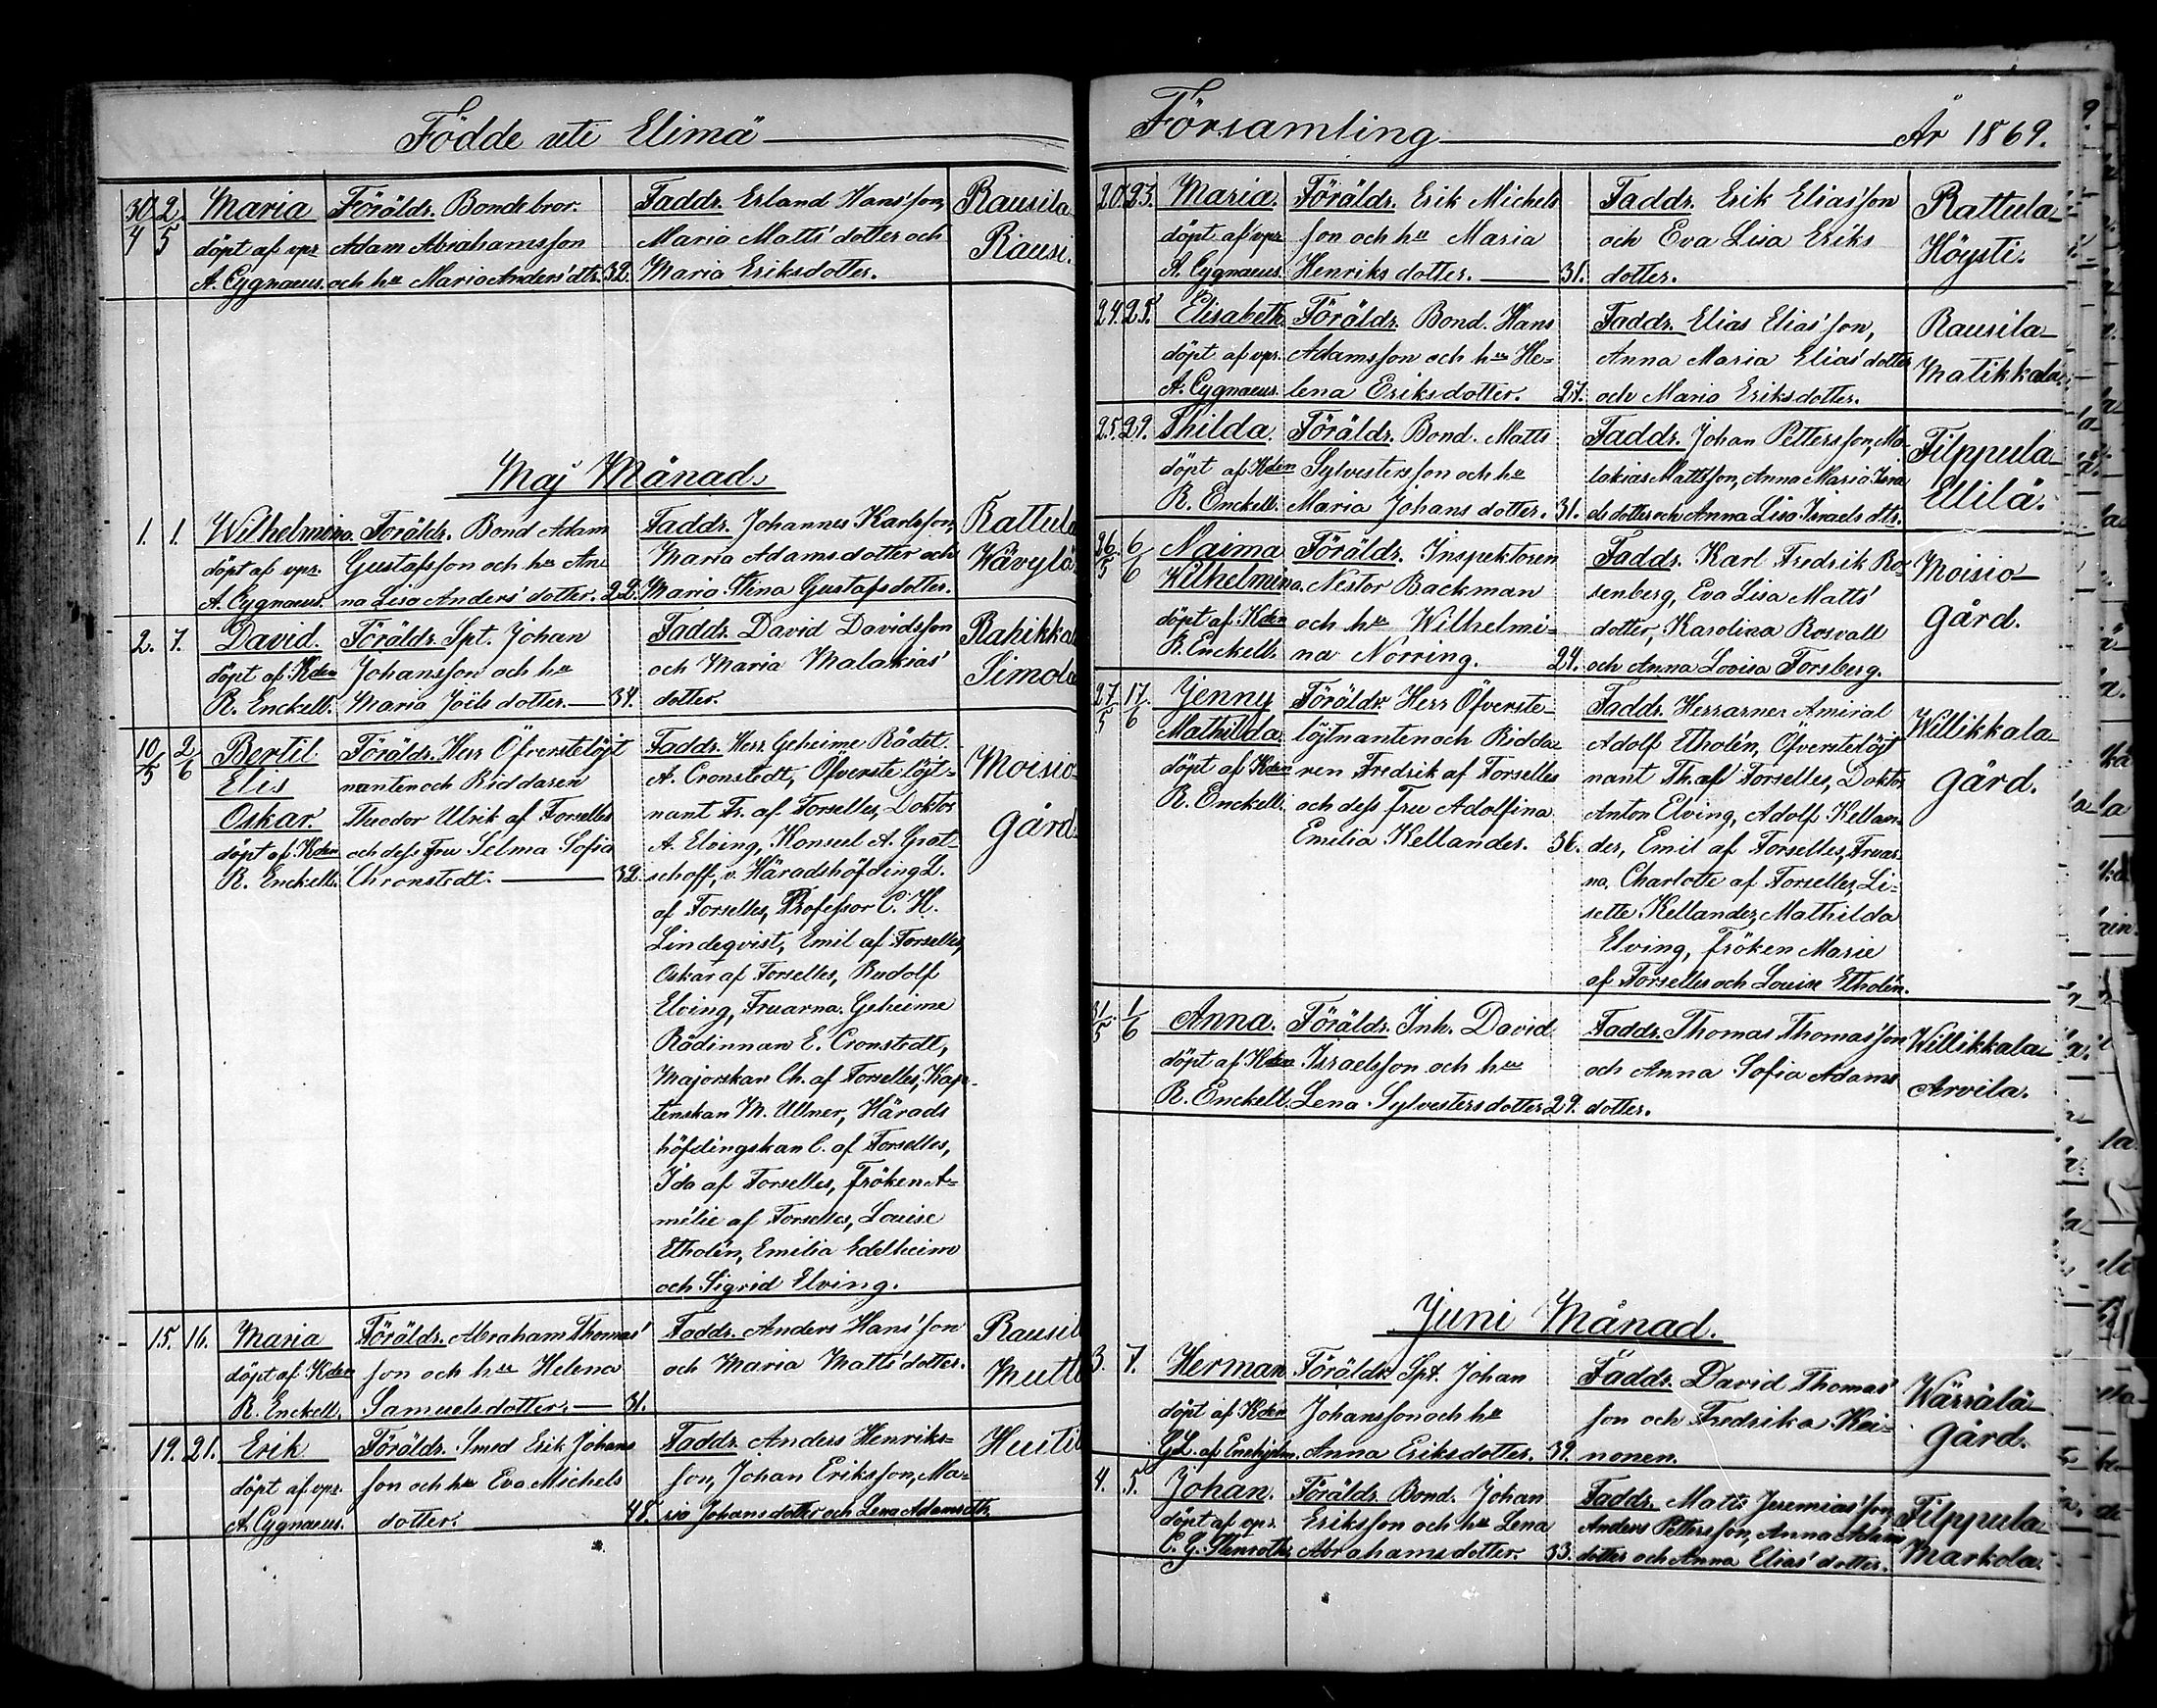 Födde uti Elimä
30/4 2/5 Maria Föräldr. Bondebror. Faddr. Erland Hans'son, Rausila
döpt af vpr. Adam Abrahamsson Maria Matts'dotter och Rausi.
A. Cygnaeus. och hu Maria Anders'dtr. 32. Maria Eriksdotter.
Maj Månad.
1. 1. Wilhelmina. Föräldr. Bond Adam Faddr. Johannes Karlsson, Rattula
döpt af vpr. Gustafsson och hu An Maria Adamsdotter och Wävylä
A. Cygnaeus. na Lisa Anders'dotter. 22. Maria Stina Gustafsdotter.
2. 7. David. Föräldr. Spt. Johan Faddr. David Davidsson
döpt af Kden Johansson och hu och Maria Malakias' Simola
R. Enckell. Maria Joëls dotter. 34. dotter.
10/5 2/6 Bertil Föräldr. Herr Öfverstelöjt Faddr. Herr Geheime Rådet. Moisio
Elis nanten och Riddaren A. Cronstedt, Öfverste löjt-
Oskar. Theodor Ulrik af Forselles nant Fr. af Forselles, Doktor gård
döpt af Kden och dess Fru Selma Sofia A. Elving, Konsul A. Grot-
R. Enckell. Chronstedt. 32. schoff, v. Häradshöfding L.
af Forselles, Professor C. H.
Lindeqvist, Emil af Forselles,
Oskar af Forselles, Rudolf
Elving, Fruarna. Geheime
Rådinnan E. Cronstedt,
Majorskan Ch. af Forselles, Kap-
tenskan M. Ullner, Härads
höfdingskan C. af Forselles,
Ida af Forselles, fröken A-
mélie af Forselles, Louise
Etholén, Emilia Edelheim
och Sigrid Elving.
15. 16. Maria Föräldr. Abraham Thomas' Faddr. Anders Hans'son Rausil
döpt af Kden son och hu Helena och Maria Matts'dotter.
R. Enckell. Samuelsdotter. 31.
19. 21. Erik Föräldr. Smed Erik Johans Faddr. Anders Henriks-
döpt af vpr. son och hu Eva Michels son, Johan Eriksson, Ma-
A. Cygnaeus. dotter. 48. ria Johansdotter och Lena Adamsdtr.
Församling År 1869.
20. 23. Maria. Föräldr. Erik Michels Faddr. Erik Elias'son Rattula
döpt af vpr. son och hu Maria och Eva Lisa Eriks Höysti.
A. Cygnaeus. Henriks dotter. 31. dotter.
24. 25. Elisabeth. Föräldr. Bond. Hans Faddr. Elias Elias'son, Rausila
döpt af vpr. Adamsson och hu He- Anna Maria Elias'dotter Matikkala
A. Cygnaeus. lena Eriksdotter. 27. och Maria Eriksdotter.
25. 29. Thilda. Föräldr. Bond. Matts Faddr. Johan Pettersson, Ma- Filppula
döpt af Kden Sylvestersson och hu lakias Mattsson, Anna Maria Isra Ellilä.
R. Enckell. Maria Johans dotter. 31. els dotter och Anna Lisa Israels dtr.
26/5 6/6 Naima Föräldr. Inspektoren Faddr. Karl Fredrik Ro- Moisio
Wilhelmina. Nestor Backman senberg, Eva Lisa Matts' gård.
döpt af Kden och hu Wilhelmi- dotter, Karolina Rosvall
R. Enckell. na Norring. 24. och Anna Lovisa Forsberg.
27/5 17/6 Jenny Föräldr. Herr Öfverste- Faddr. Herrarne Amiral Willikkala
Mathilda. löjtnanten och Ridda- Adolf Etholén, Öfverstelöjt
döpt af Kden ren Fredrik af Forselles nant Th. af Forselles, Doktor gård.
R. Enckell. och dess Fru Adolfina Anton Elving, Adolf Kellan-
Emilia Kellander. 36. der, Emil af Forselles, Fruar-
na, Charlotte af Forselles, Li-
sette Kellander, Mathilda
Elving, fröken Marie
af Forselles och Louise Etholén.
31/5 1/6 Anna. Föräldr. Inh. David Faddr. Thomas Thomas'son Willikkala
döpt af Kden Israelsson och hu och Anna Sofia Adams Arvila.
R. Enckell. Lena Sylvesters dotter 29. dotter.
Juni Månad.
3. 7. Herman Föräldr. Spt. Johan Faddr. David Thomas' Wärrälä
döpt af Kden Johansson och hu son och Fredrika Hei- gård.
G. L. af Enehjelm. Anna Eriksdotter. 39. nonen.
4. 5. Johan. Föräldr. Bond. Johan Faddr. Matts Jeremias'son, Filppula
döpt af vpr. Eriksson och hu Lena Anders Pettersson, Anna Adams Markola.
C. G. Stenroth. Abrahamsdotter. 33. dotter och Anna Elias'dotter.